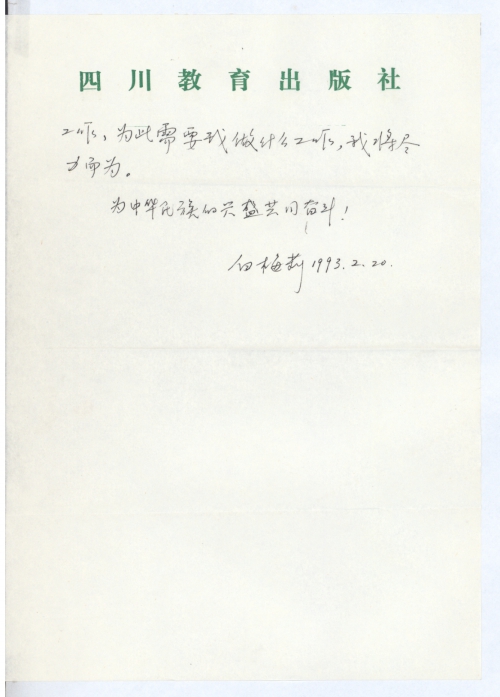 四川教育出版社
工作，为此需要我做什么工作，我将尽
力而为。
为中华民族的兴盛共同奋斗！
白梅 1993.2.20.